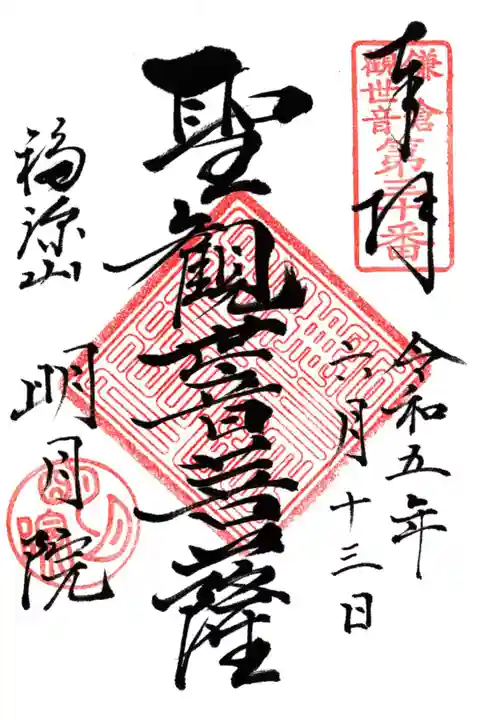 奉拝
鎌倉
觀世音
第三十番
令和五年
六月十三日
聖観世音菩薩
福源山
明月院